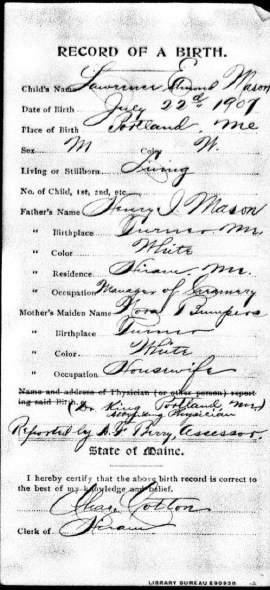 RECORD OF A BIRTH.
E
Child's Name Lawrence Edmund Mason
Date of Birth July 22d 1907
Place of Birth Portland, Me
Sex M Color W.
Living or Stillborn Living
No. of Child, 1st, 2nd, etc.
Father's Name Henry I. Mason
" Birthplace Turner Me
" Color White
" Residence Hiram, Me.
" Occupation Manager of Creamery
Mother's Maiden Name Bumpus
" Birthplace Turner
" Color White
" Occupation Housewife
Name and address of Physician (or other person) report
ing said Birth.
(Dr. King Portland Me)
attending Physician
Reported by Perry, Assessor.
State of Maine.
I hereby certify that the above birth record is correct to
the best of my knowledge and belief.
Chas. Cotton
Clerk of Hiram
LIBRARY BUREAU E90930